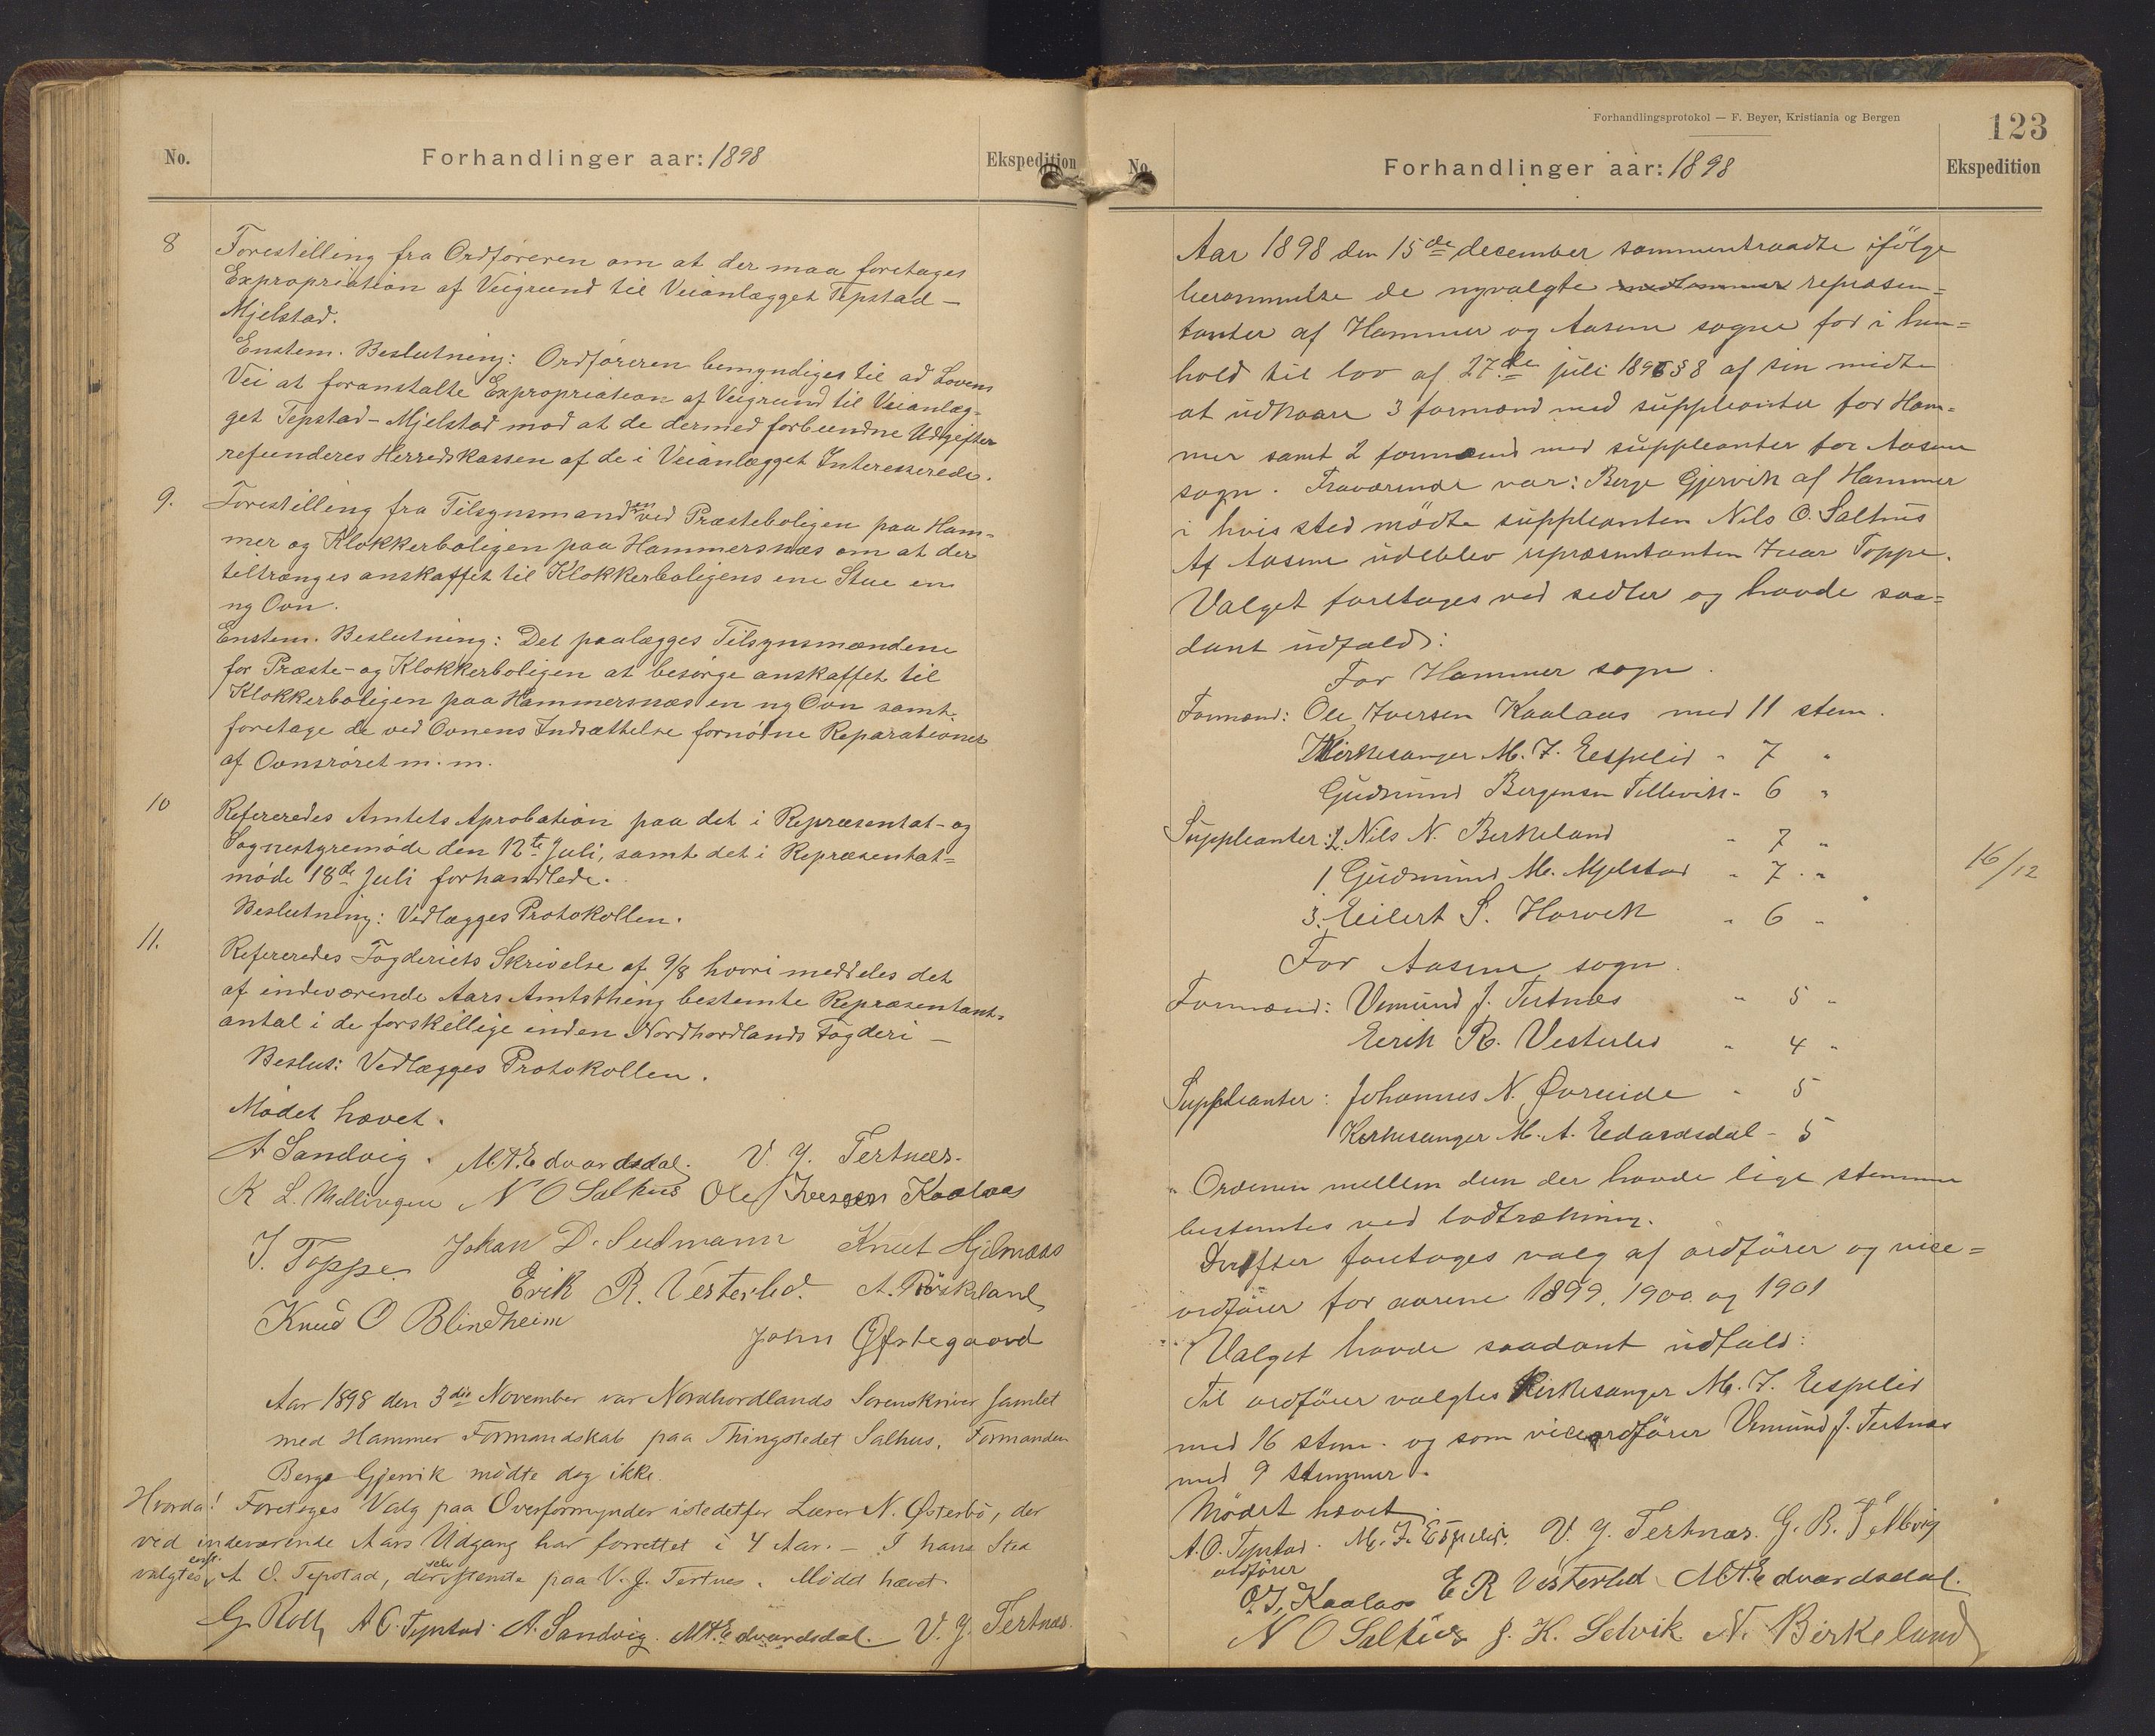 No.
Forhandlinger aar: 1898
Ekspedition
8
Forestilling fra Ordføreren om at der maa foretages
Expropriation af Veigrund til Veianlægget Tepstad –
Mjelstad.
Enstem. Beslutning: Ordføreren bemyndiges til ad Lovens
Vei at foranstalte Expropriation af Veigrund til Veianlæg-
get Tepstad – Mjelstad mod at de dermed forbundne Udgifter
refunderes Herredskassen af de i Veianlægget Interesserede.
9.
Forestilling fra Tilsynsmændene ved Præsteboligen paa Ham-
mer og Klokkerboligen paa Hammersnæs om at der
tiltrænges anskaffet til Klokkerboligens ene Stue en
ny Ovn.
Enstem. Beslutning: Det paalægges Tilsynsmændene
for Præste- og Klokkerboligen at besørge anskaffet til
Klokkerboligen paa Hammersnæs en ny Ovn samt
foretage de ved Ovnens Indsættelse fornødne Reparationer
af Ovnsrøret m. m.
10
Refereredes Amtets Aprobation paa det i Repræsentat- og
Sognestyremøde den 12te Juli, samt det i Repræsentat=
møde 18de Juli forhandlede.
Beslutning: Vedlægges Protokollen.
11.
Refereredes Fogderiets Skrivelse af 9/8 hvori meddeles det
af indeværende Aars Amtsthing bestemte Repræsentant-
antal i de forskellige inden Nordhordlands Fogderi –
Beslut: Vedlægges Protokollen.
Mødet hævet.
A Sandvig. M.A. Edvardsdal. V. J. Tertnæs.
K L. Mellingen N O Salhus Ole Iversen Kaalaas
I. Toppe. Johan D. Sudmann Knut Hjelmaas
Erik R. Vesterlid. A. Røskeland
Knud O Blindheim
John Øfstegaard
Aar 1898 den 3die November var Nordhordlands Sorenskriver samlet
med Hammer Formandskab paa Thingstedet Salhus. Formanden
Berge Gjervik mødte dog ikke.
Hvorda! Foretoges Valg paa Overformynder istedetfor Lærer N. Østerbø, der
ved indeværende Aars Udgang har forrettet i 4 Aar. – I hans Sted
valgtes A O. Tepstad, der selv stemte paa V. J. Tertnes. Mødet hævet.
G. Roll, A O. Tepstad. A. Sandvig. M.A. Edvardsdal. V. J. Tertnæs.
Forhandlingsprotokol — F. Beyer, Kristiania og Bergen
123
No.
Forhandlinger aar: 1898
Ekspedition
Aar 1898 den 15de december sammentraadte ifølge
berammelse de nyvalgte medlemmer repræsen=
tanter af Hammer og Aasene sogne for i hen=
hold til lov af 27de juli 1896 § 8 af sin midte
at udkaare 3 formænd med suppleanter for Ham=
mer samt 2 formænd med suppleanter for Aasene
sogn. Fraværende var: Berge Gjervik af Hammer
i hvis sted mødte suppleanten Nils O. Salhus
Af Aasene udeblev repræsentanten Ivar Toppe.
Valget foretoges ved sedler og havde saa=
dant udfald:
For Hammer sogn.
Formænd: Ole Iversen Kaalaas med 11 stem.
Kirkesanger M. J. Eespelid " 7 "
Gudmund Bergesen Tellevik " 6 "
Suppleanter: 2. Nils N. Birkeland " 7 "
1 Gudmund M. Mjelstad " 7 "
3. Eilert S. Horvik " 6 "
16/12
For Aasene sogn.
Formænd: Vemund J. Tertnæs " 5 "
Eerik R. Vesterlid " 4 "
Suppleanter: Johannes N. Øvreeide " 5
Kirkesanger M. A. Edvardsdal – 5
Ordenen mellem dem der havde lige stemmer
bestemtes ved lodtrækning.
Derefter foretoges valg af ordfører og vice=
ordfører for aarene 1899, 1900 og 1901
Valget havde saadant udfald:
Til ordfører valgtes Kirkesanger M. J. Eespelid
med 16 stem. og som viceordfører Vemund J. Tertnæs
med 9 stemmer.
Mødet hævet.
A. O. Tepstad. M. J. Espelid. V. J. Tertnæs. G. B. Tellevig
ordfører
O. I. Kaalaas E R Vesterlid M A Edvardsdal.
N O Salhus J. K. Selvik N. Birkeland